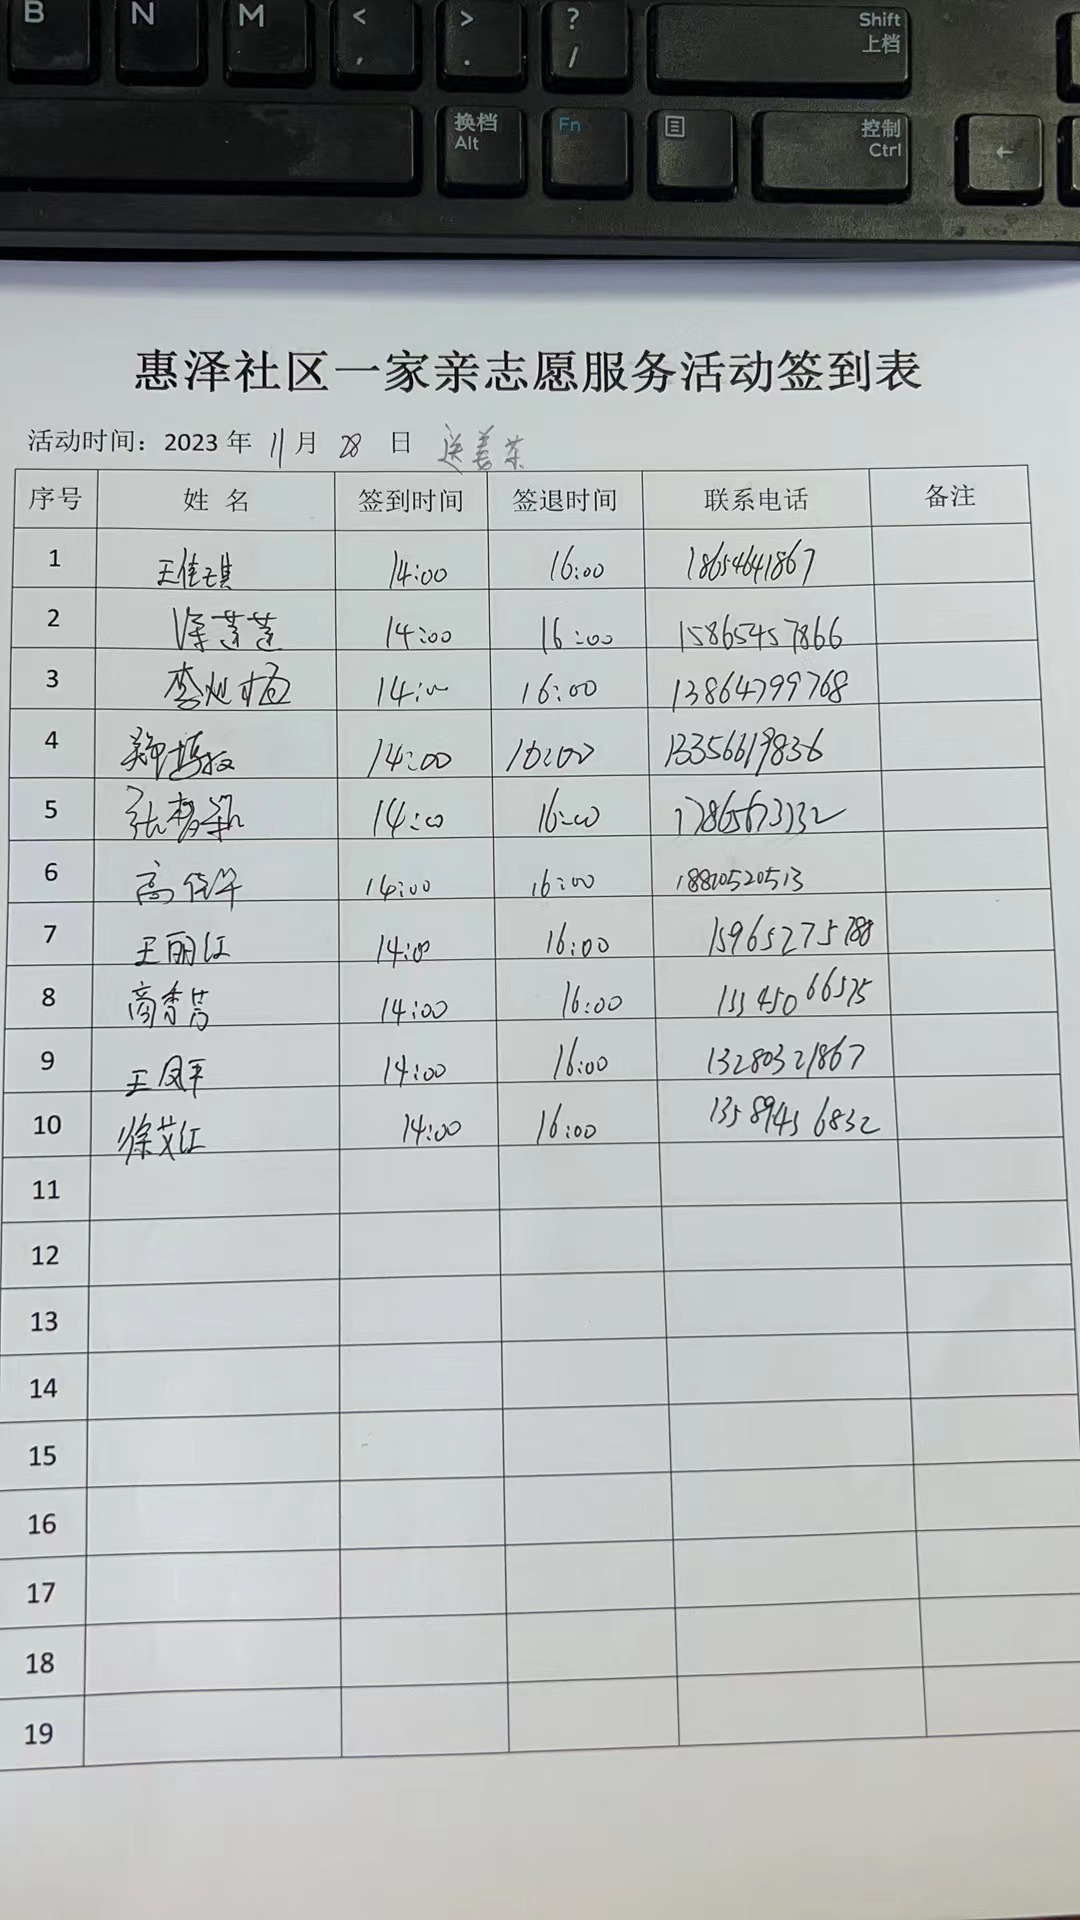 B N M < , > . ? / Shift 上档
换档 Alt Fn 控制 Ctrl ←
惠泽社区一家亲志愿服务活动签到表
活动时间：2023 年 11 月 28 日 送姜茶
序号 姓 名 签到时间 签退时间 联系电话 备注
1 王佳琪 14:00 16:00 18654641867
2 徐莲莲 14:00 16:00 15865457866
3 14:00 16:00 13864799768
4 14:00 16:00 13356619836
5 14:00 16:00
6 14:00 16:00 18820520513
7 王丽红 14:00 16:00
8 商秀芳 14:00 16:00 15545066575
9 王凤平 14:00 16:00 13280321867
10 徐艾红 14:00 16:00 13589456832
11
12
13
14
15
16
17
18
19